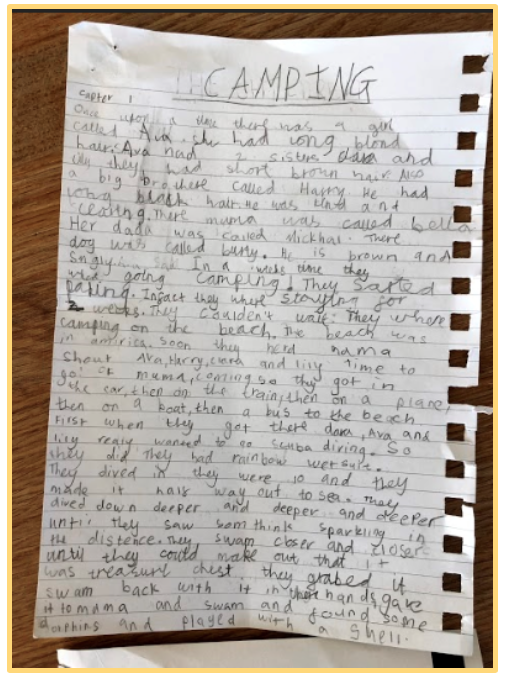 CAMPING
capter 1
Once upon a time there was a girl
called Ava. she had long blond
hair. Ava had 2 sisters dara and
lily they had short brown hair. Also
a big brothere called Harry. He had
long black hair. He was kind and
There mama was called bella
Her dada was called Mickhal. There
dog was called busty. He is brown and
In a weeks time they
going camping! They
Infact they where staying for
2 weeks. They couldn't wait. They where
camping on the beach. the beach was
in america. Soon they herd mama
shout Ava, Harry, and lily time to
go! ok mama, coming so they got in
the car, then on the train, then on a plane,
then on a boat, then a bus to the beach
First when they got there dara, Ava and
lily realy wanted to go scuba diving. So
they did They had rainbow wetsuit.
They dived in they were 10 and they
made it half way out to sea. They
dived down deeper and deeper and deeper
until they saw somthink sparkling in
the distence. They swam closer and closer
until they could make out that it
was treasure chest. they grabed it
swam back with it in there hands, gave
it to mama and swam and found some
dolphins and played with a shell.